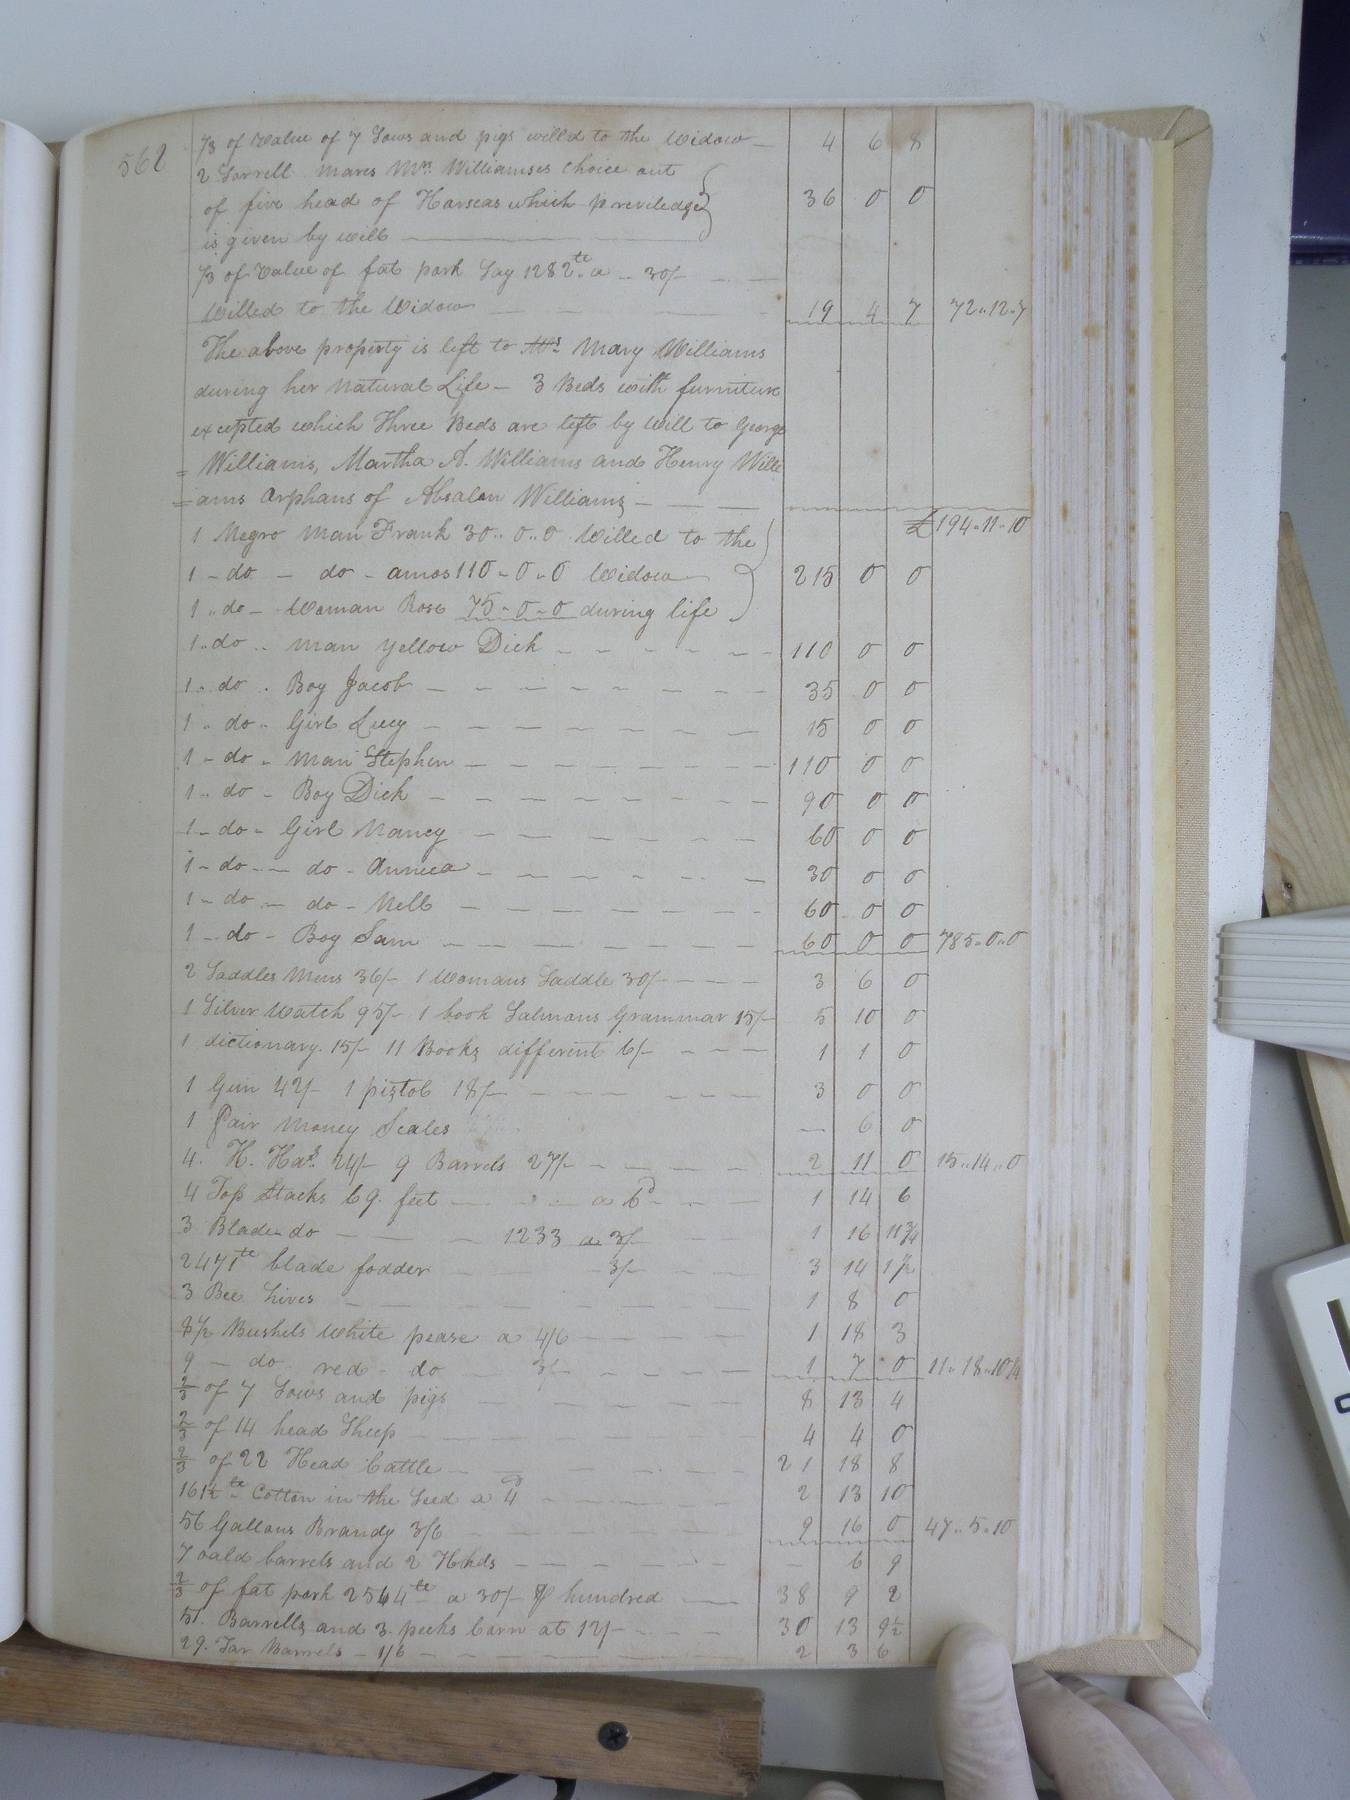 562
⅓ of Value of 7 Sows and pigs willd to the Widow — 4 6 8
2 Sorrell mares Mrs. Williamses Choice out
of five head of Horseas which preveledge 36 0 0
is given by will —
⅓ of Value of fat pork Say 1282 lb. a - 30/- - -
Willed to the Widow — — — 19 4 7 72..12..7
The above property is left to Mrs. Mary Williams
during her natural Life — 3 Beds with furniture
excepted which Three Beds are left by Will to George
= Williams, Martha A. Williams and Henry Willi
= ams Orphans of Absalom Williams — — —
£194..11..10
1 Negro Man Frank 30..0..0 Willed to the
1 - do - do - amos 110-0-0 Widow 215 0 0
1 .. do - Woman Rose 75-0-0 during life
1..do .. man yellow Dick - - - - - - 110 0 0
1.. do . Boy Jacob - - - - - - - - 35 0 0
1 .. do .. Girl Lucy - - - - - - - 15 0 0
1 - do - Man Stephen - - - - - - - 110 0 0
1 .. do - Boy Dick - - - - - - - 90 0 0
1 - do - Girl Nancy - - - - - - - 60 0 0
1 - do - - do - Annica - - - - - - 30 0 0
1 - do - do - Nell - - - - - - - 60 0 0
1 - do - Boy Sam - - - - - - - 60 0 0 785..0..0
2 Saddles Mens 36/- 1 Womans Saddle 30/- - - - 3 6 0
1 Silver Watch 95/- 1 book Salmons Grammar 15/- 5 10 0
1 dictionary. 15/- 11 Books different 6/- - - - 1 1 0
1 Gun 42/- 1 pistol 18/- - - - - - - 3 0 0
1 Pair Money Scales — 6 0
4. H. Hds. 24/- 9 Barrels 27/- - - - - - 2 11 0 15..14..0
4 Top Stacks 69. feet — - - a 6d - - 1 14 6
3 Blade do — — - 1233 a 3/- - - - 1 16 11¾
2471 lb blade fodder - - - 3/- - - - 3 14 1½
3 Bee hives - - - - - - - - 1 8 0
8½ Bushels White pease a 4/6 - - - - 1 18 3
9 - do red - do - 3/- - - - - 1 7 0 11..18..10¼
⅔ of 7 Sows and pigs - - - - - 8 13 4
⅔ of 14 head Sheep - - - - - - 4 4 0
⅔ of 22 Head Cattle - - - - - - 21 18 8
161½ lb Cotton in the Seed a 4d - - - - 2 13 10
56 Gallons Brandy 3/6 - - - - - 9 16 0 47..5..10
7 oald barrels and 2 Hhds - - - - - - — 6 9
⅔ of fat pork 2564 lb a 30/- ⅌ hundred — 38 9 2
51. Barrells and 3. pecks Corn at 12/- - - - 30 13 9½
29. Tar Barrels - 1/6 - - - - - - 2 3 6